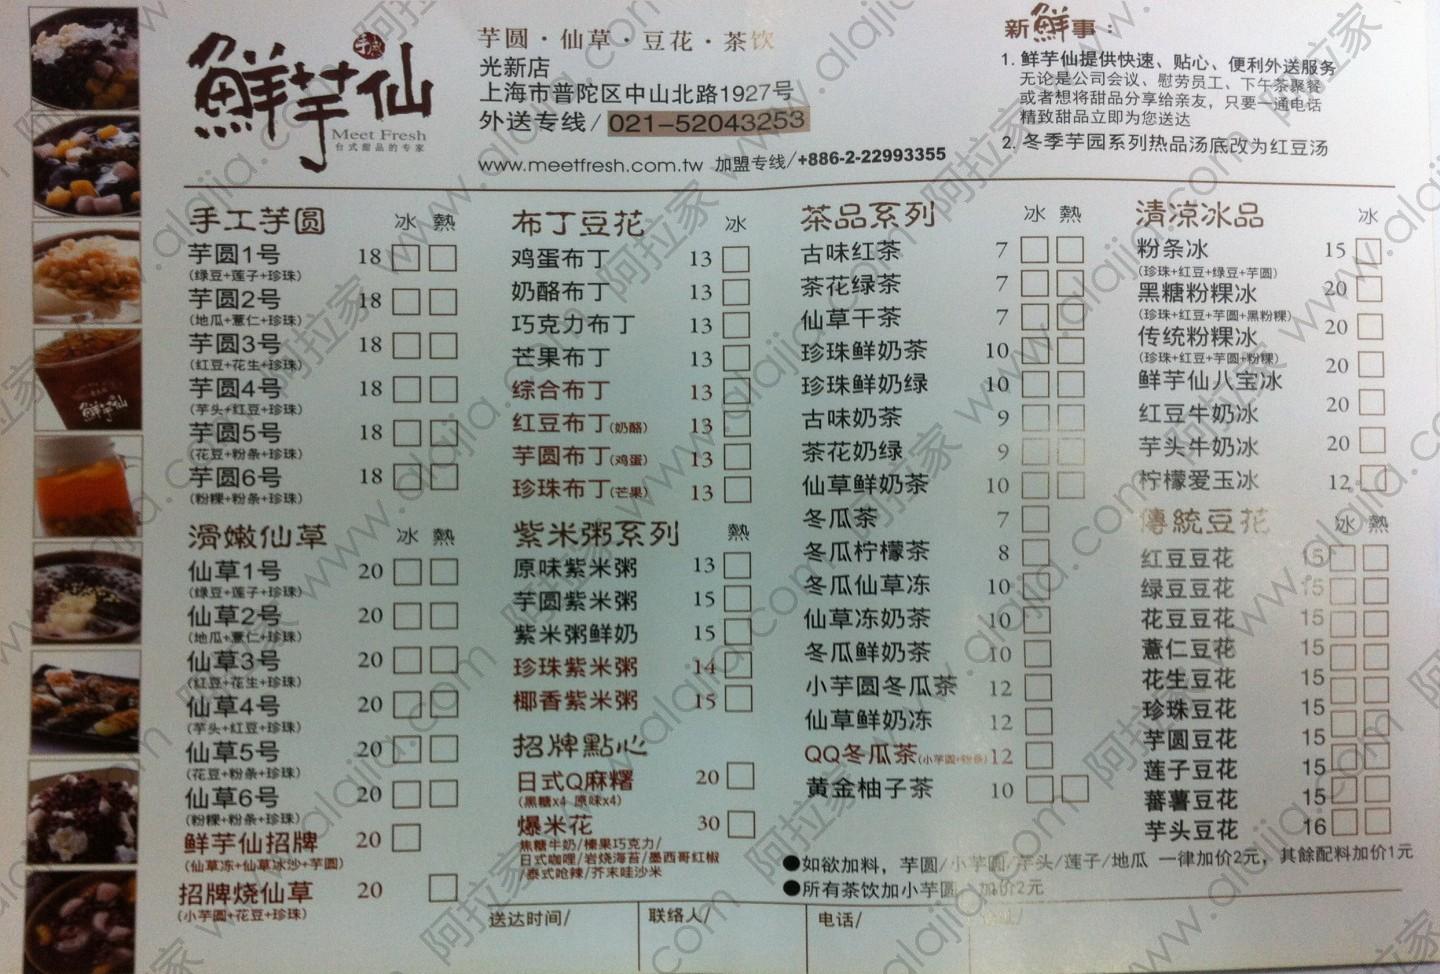 鮮芋仙
手感
Meet Fresh
台式甜品的专家
芋圆·仙草·豆花·茶饮
光新店
上海市普陀区中山北路1927号
外送专线/021-52043253
www.meetfresh.com.tw 加盟专线/+886-2-22993355
新鮮事：
1. 鲜芋仙提供快速、贴心、便利外送服务
无论是公司会议、慰劳员工、下午茶聚餐
或者想将甜品分享给亲友，只要一通电话
精致甜品立即为您送达
2. 冬季芋园系列热品汤底改为红豆汤
手工芋圆 冰 熱
芋圆1号 18
(绿豆+莲子+珍珠)
芋圆2号 18
(地瓜+薏仁+珍珠)
芋圆3号 18
(红豆+花生+珍珠)
芋圆4号 18
(芋头+红豆+珍珠)
芋圆5号 18
(花豆+粉条+珍珠)
芋圆6号 18
(粉粿+粉条+珍珠)
滑嫩仙草 冰 熱
仙草1号 20
(绿豆+莲子+珍珠)
仙草2号 20
(地瓜+薏仁+珍珠)
仙草3号 20
(红豆+花生+珍珠)
仙草4号 20
(芋头+红豆+珍珠)
仙草5号 20
(花豆+粉条+珍珠)
仙草6号 20
(粉粿+粉条+珍珠)
鲜芋仙招牌 20
(仙草冻+仙草冰沙+芋圆)
招牌烧仙草 20
(小芋圆+花豆+珍珠)
布丁豆花 冰
鸡蛋布丁 13
奶酪布丁 13
巧克力布丁 13
芒果布丁 13
综合布丁 13
红豆布丁(奶酪) 13
芋圆布丁(鸡蛋) 13
珍珠布丁(芒果) 13
紫米粥系列 熱
原味紫米粥 13
芋圆紫米粥 15
紫米粥鲜奶 15
珍珠紫米粥 14
椰香紫米粥 15
招牌點心
日式Q麻糬 20
(黑糖x4 原味x4)
爆米花 30
焦糖牛奶/榛果巧克力/
日式咖哩/岩烧海苔/墨西哥红椒
/泰式呛辣/芥末哇沙米
茶品系列 冰 熱
古味红茶 7
茶花绿茶 7
仙草干茶 7
珍珠鲜奶茶 10
珍珠鲜奶绿 10
古味奶茶 9
茶花奶绿 9
仙草鲜奶茶 10
冬瓜茶 7
冬瓜柠檬茶 8
冬瓜仙草冻 10
仙草冻奶茶 10
冬瓜鲜奶茶 10
小芋圆冬瓜茶 12
仙草鲜奶冻 12
QQ冬瓜茶(小芋圆+粉条) 12
黄金柚子茶 10
清凉冰品 冰
粉条冰 15
(珍珠+红豆+绿豆+芋圆)
黑糖粉粿冰 20
(珍珠+红豆+芋圆+黑粉粿)
传统粉粿冰 20
(珍珠+红豆+芋圆+粉粿)
鲜芋仙八宝冰 20
红豆牛奶冰 20
芋头牛奶冰 20
柠檬爱玉冰 12
傳統豆花 冰 熱
红豆豆花 15
绿豆豆花 15
花豆豆花 15
薏仁豆花 15
花生豆花 15
珍珠豆花 15
芋圆豆花 15
莲子豆花 15
蕃薯豆花 15
芋头豆花 16
●如欲加料，芋圆/小芋圆/芋头/莲子/地瓜 一律加价2元，其餘配料加价1元
●所有茶饮加小芋圆 加价2元
送达时间/ 联络人/ 电话/
阿拉家 www.alajia.com